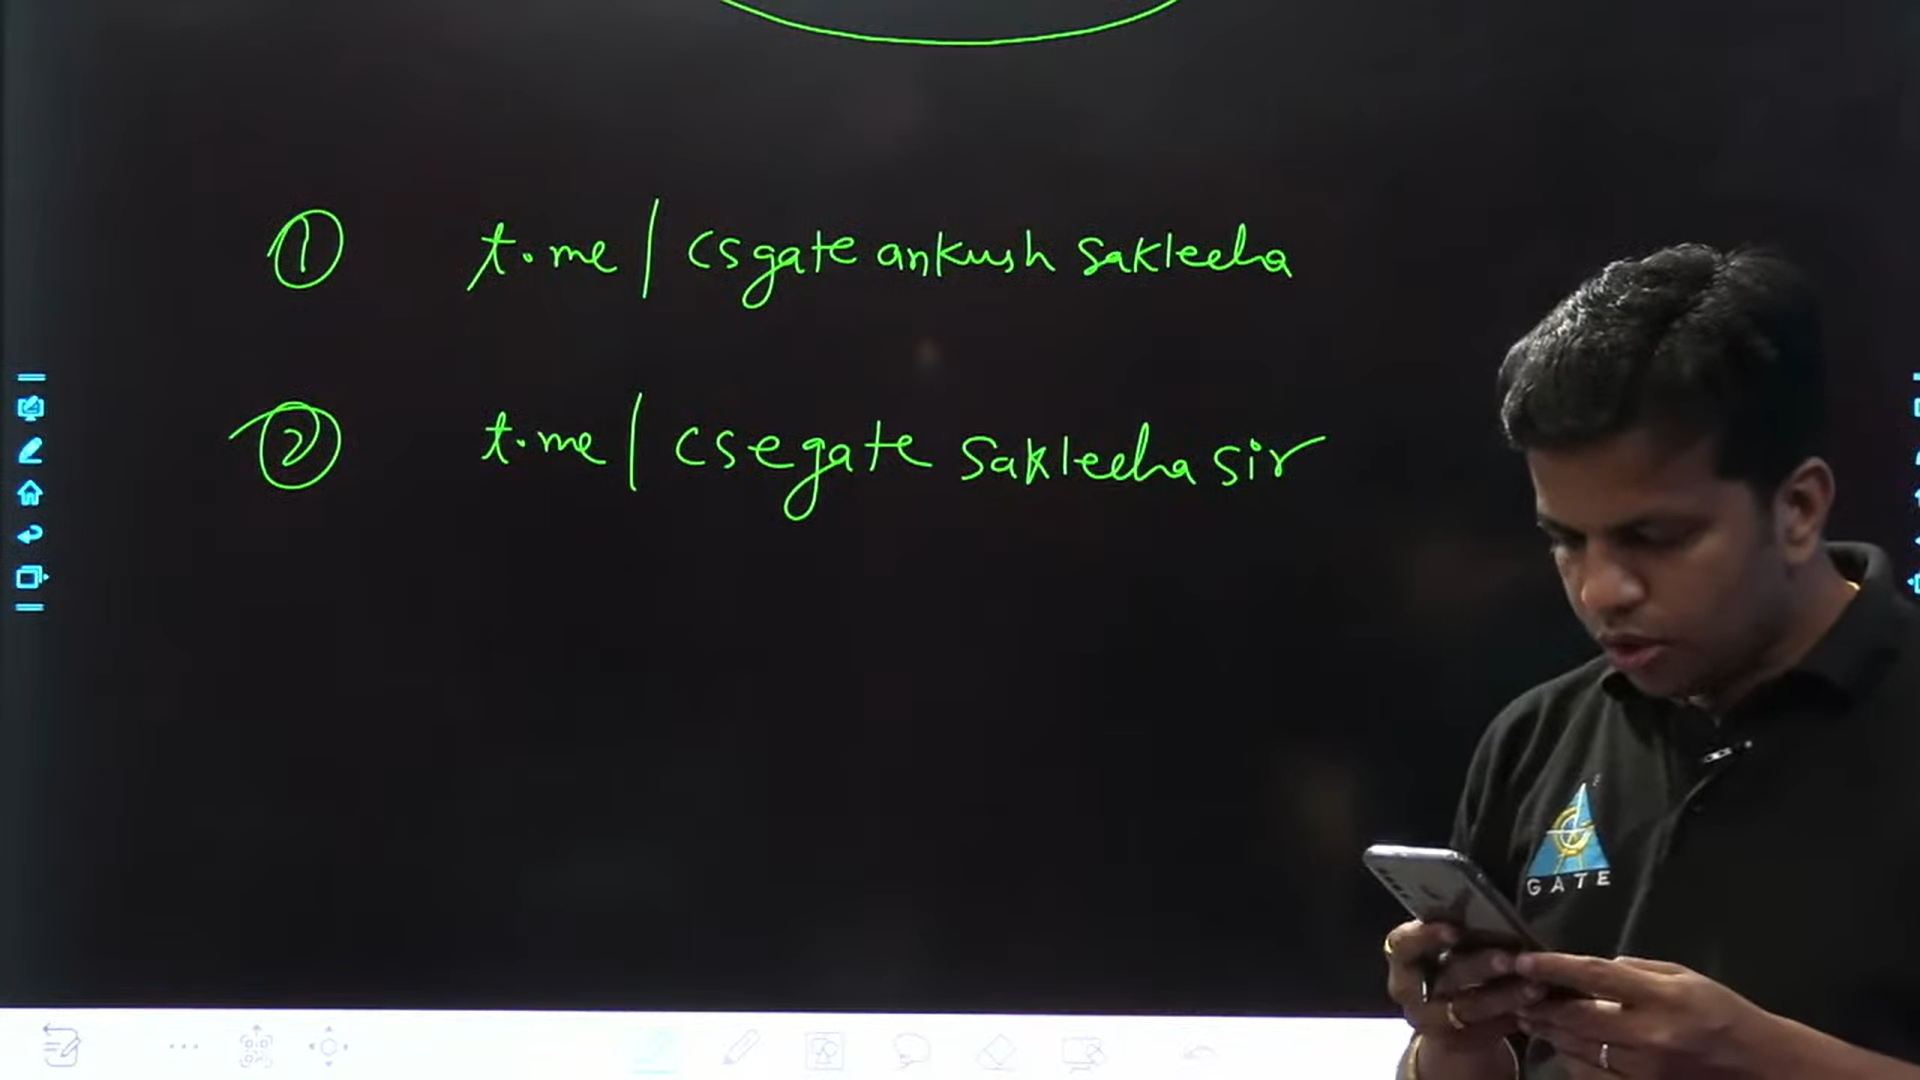 ① t.me/csgate ankush saklecha
② t.me/csegate saklecha sir
GATE